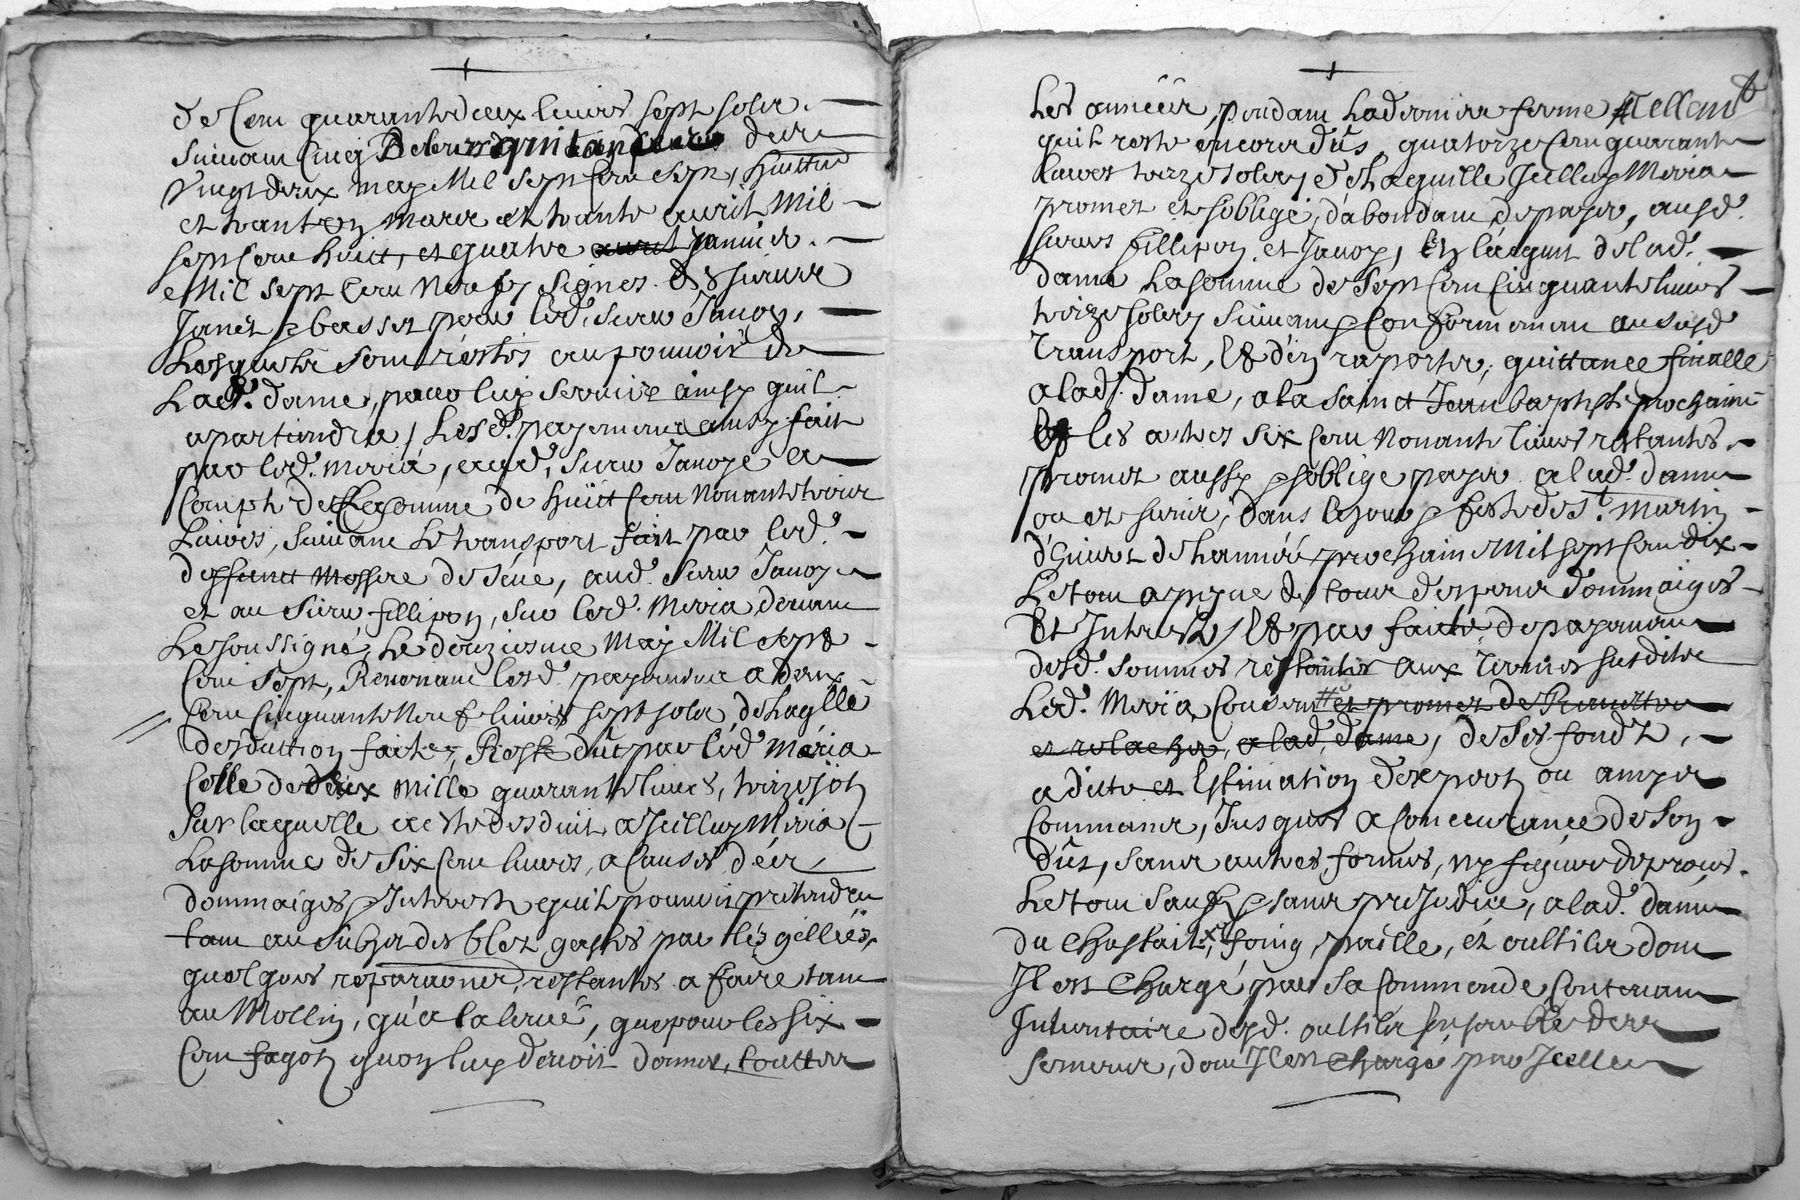 de Cent quarante deux livres sept solz.
Suivant Cinq quitances du
vingt deux may Mil sept cent sept, huitte
et trante mars et trante avril Mil
sept Cent huict, et quatre avril janvier.
Mil sept Cent Neuf signes
Janet p basset pour led. sieur Janon,
Lesquelz sont restés au pouvoir de
Lad. dame, pour luy servir ainsy quil
apartiendra, Lesd. payements ainsy fait
par led. Meria, aud. sieur Janoye a
Compte de la somme de huict Cent Nonante troix
Livres, suivant le transport fait par led.
deffunct Messire de Seve, aud. sieur Janon
et au sieur fillipon, sur led. Meria devant
Le soussigné, Le douziesme May Mil sept
Cent sept, Revenant lesd. payements a deux
Cent Cinquante Neuf livres sept solz, de laqlle
desduction faite, Reste dût par led. Meria
Celle de deux mille quarante livres, treize sols
Sur laquelle a esté desduit a Icelluy Meria
La somme de six Cent livres, a Causes des
dommaiges p Interests quil pouvoit pretendre
tant au subjet des bledz gastés par les gellées,
quelques reparaons restantes a faire tant
au Mollin, qu'a la leveé, que pour les six
Cent fagotz quon luy devoit donner, touttes
Les années, pendant La derniere ferme Tellemt
quil reste encore dûs, quatorze Cent quarante
Livres treize solz, de laquelle Icelluy Meria
promet et s'oblige, d'abondant de payer, ausd.
sieurs fillipon et Janon, En l'acquit de lad.
dame La somme de Sept Cent Cinquante livres
treize solz, suivant p Conformement au susd
Transport, Et d'en raporter, quittance finalle
a lad. dame, a la Sainct Jean baptiste prochaine
Et les autres six Cent Nonante livres restantes
promet aussy p s'oblige payer a lad. dame
ou es siens, dans le jour p feste de St. Martin
d'hiver de l'année prochaine Mil sept Cent dix
Le tout a peyne de tous despens dommaiges
Et Interestz, Et par faute de payement
desd. sommes restantes aux termes susdites
Led. Meria, Consent et promet de Remettre
et relacher, a lad. dame, de ses fondz,
a ditte et Estimation d'expertz ou amys
Communs, Jusques a Concurance de son
dût, sans autres formes, ny figure de proces.
Le tout sauf p sans prejudice, a lad. dame
du Chastail, foing, paille, et oultilz dont
Il est Chargé, par sa Commande Contenant
Inventaire desd. oultilz
semence, dont Il est Chargé par Icelle